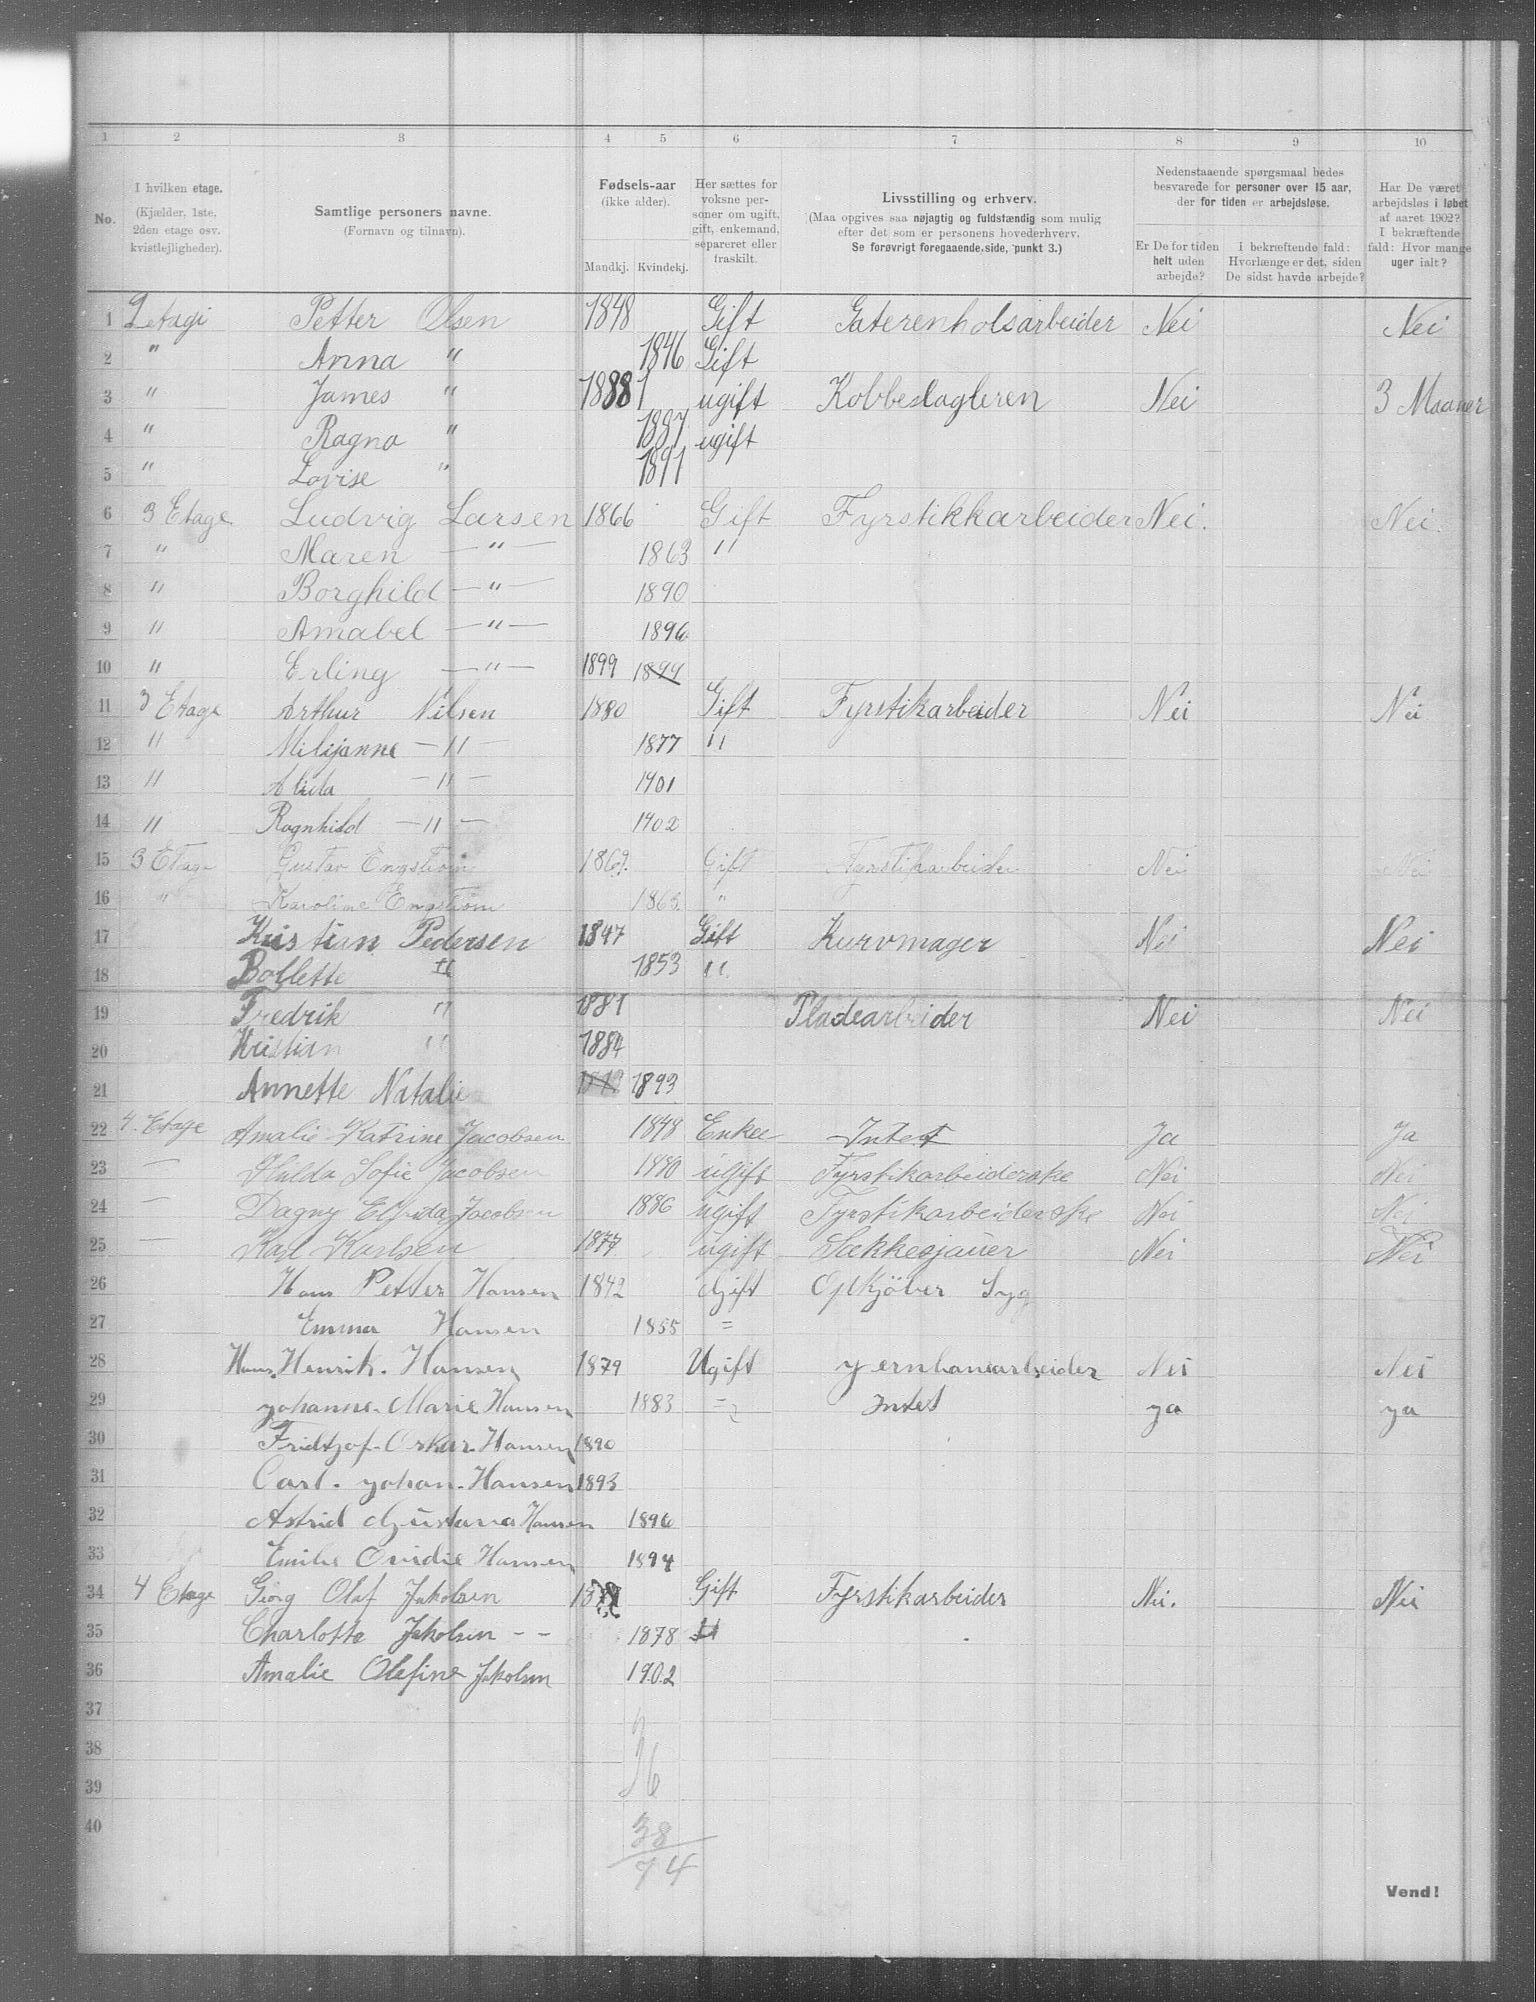 1 2 3 4 5 6 7 8 9 10
No.
I hvilken etage.
(Kjælder, 1ste,
2den etage osv.
kvistlejligheder).
Samtlige personers navne.
(Fornavn og tilnavn).
Fødsels-aar
(ikke alder).
Mandkj. Kvindekj.
Her sættes for
voksne per-
soner om ugift,
gift, enkemand,
separeret eller
fraskilt.
Livsstilling og erhverv.
(Maa opgives saa nøjagtig og fuldstændig som mulig
efter det som er personens hovederhverv.
Se forøvrigt foregaaende side, punkt 3.)
Nedenstaaende spørgsmaal bedes
besvarede for personer over 15 aar,
der for tiden er arbejdsløse.
Er De for tiden
helt uden
arbejde?
I bekræftende fald:
Hvorlænge er det, siden
De sidst havde arbejde?
Har De været
arbejdsløs i løbet
af aaret 1902?
I bekræftende
fald: Hvor mange
uger ialt?
1 2 etagi Petter Olsen 1848 Gift Gaterenholsarbeider Nei Nei
2 " Anna " 1846 Gift
3 " James " 1888 ugift Kobbeslagleren Nei 3 Maaner
4 " Ragna " 1887 ugift
5 " Lovise " 1891
6 3 Etage Ludvig Larsen 1866 Gift Fyrstikkarbeider Nei. Nei.
7 " Maren — " — 1863 "
8 " Borghild — " — 1890
9 " Amabel — " — 1896
10 " Erling — " — 1899 1899
11 3 Etage Arthur Nilsen 1880 Gift Fyrstikarbeider Nei Nei
12 " Milijanne — " — 1877 "
13 " Alida — " — 1901
14 " Ragnhild — " — 1902
15 3 Etage Gustav Engstrøm 1869. Gift Fyrstikarbeider Nei Nei
16 " Karoline Engstrøm 1863. "
17 Kristian Pedersen 1847 Gift Kurvmager Nei Nei
18 Bollette " 1853 "
19 Fredrik " 1881 Pladearbeider Nei Nei
20 Kristian " 1884
21 Annette Natalie 1893
22 4. Etage Amalie Katrine Jacobsen 1848 Enke Intet Ja Ja
23 — Hulda Sofie Jacobsen 1880 ugift Fyrstikarbeiderske Nei Nei
24 — Dagny Elfrida Jacobsen 1886 ugift Fyrstikarbeiderske Nei Nei
25 — Karl Karlsen 1877 ugift Sækkesjauer Nei Nei
26 Hans Petter Hansen 1842 Gift Opkjöber Syg
27 Emma Hansen 1855 =
28 Hans. Henrik. Hansen 1879 Ugift yernbanearbeider Nei Nei
29 yohanne. Marie Hansen 1883 = Intet ya ya
30 Fridtjof. Oskar. Hansen 1890
31 Carl. yohan. Hansen 1893
32 Astrid Gustava Hansen 1896
33 Emilie Ovidie Hansen 1894
34 4 Etage Georg Olaf Jakolsen Gift Fyrstikarbeider Nei. Nei
35 Charlotte Jakolsen - - 1878 "
36 Amalie Olefine Jakolsen 1902
37
38
39
40
36
38
74
Vend!